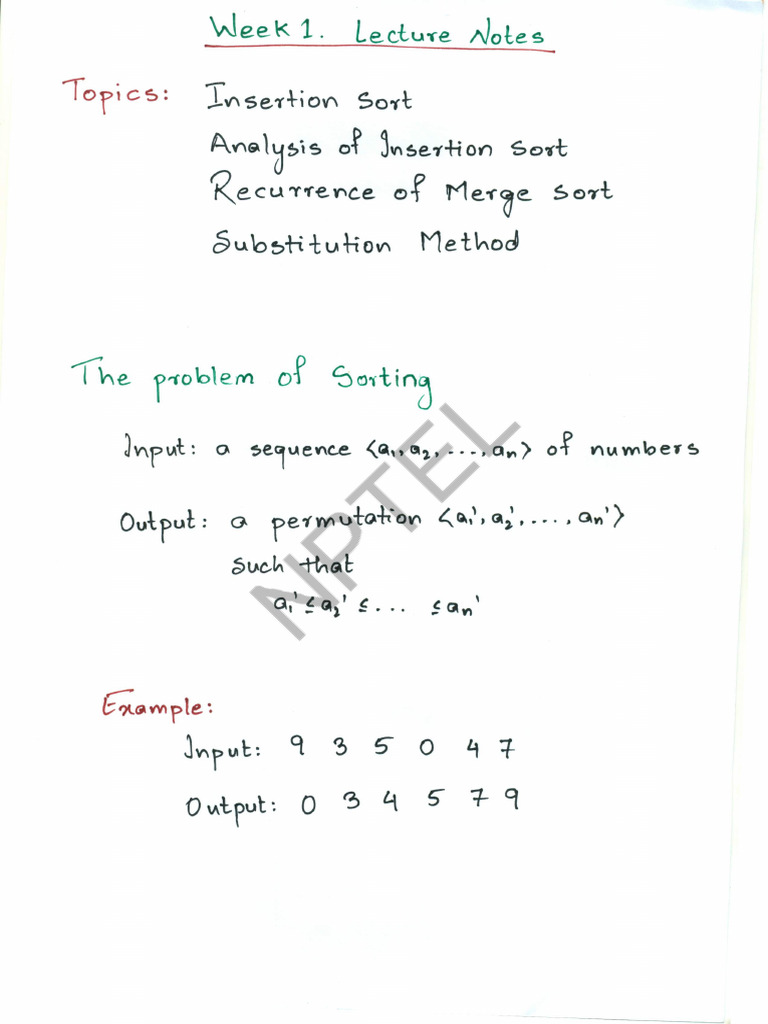 Week 1. Lecture Notes
Topics: Insertion sort
Analysis of Insertion sort
Recurrence of Merge sort
Substitution Method
The problem of Sorting
Input: a sequence ⟨a₁, a₂, ..., aₙ⟩ of numbers
Output: a permutation ⟨a₁', a₂', ..., aₙ'⟩
such that
a₁' ≤ a₂' ≤ ... ≤ aₙ'
NPTEL
Example:
Input: 9 3 5 0 4 7
Output: 0 3 4 5 7 9